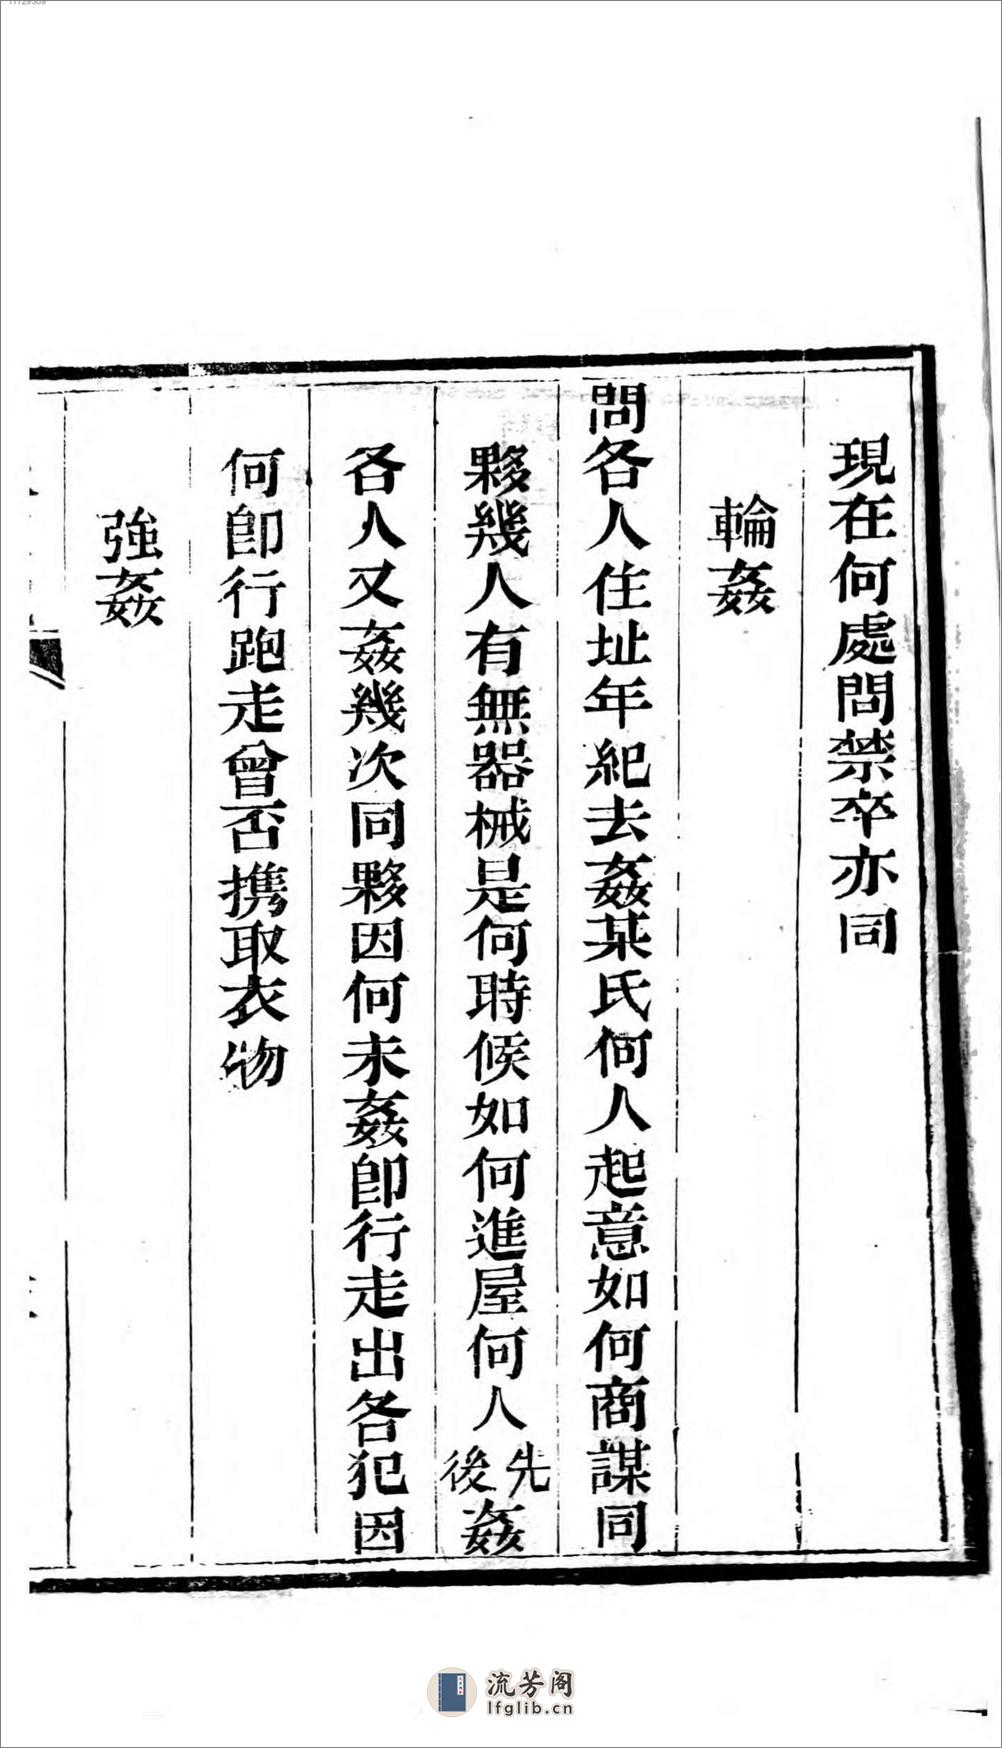 現在何處問禁卒亦同
輪姦
問各人住址年紀去姦某氏何人起意如何商謀同
夥幾人有無器械是何時候如何進屋何人先後姦
各人又姦幾次同夥因何未姦卽行走出各犯因
何卽行跑走曾否携取衣物
強姦
流芳阁
lfglib.cn